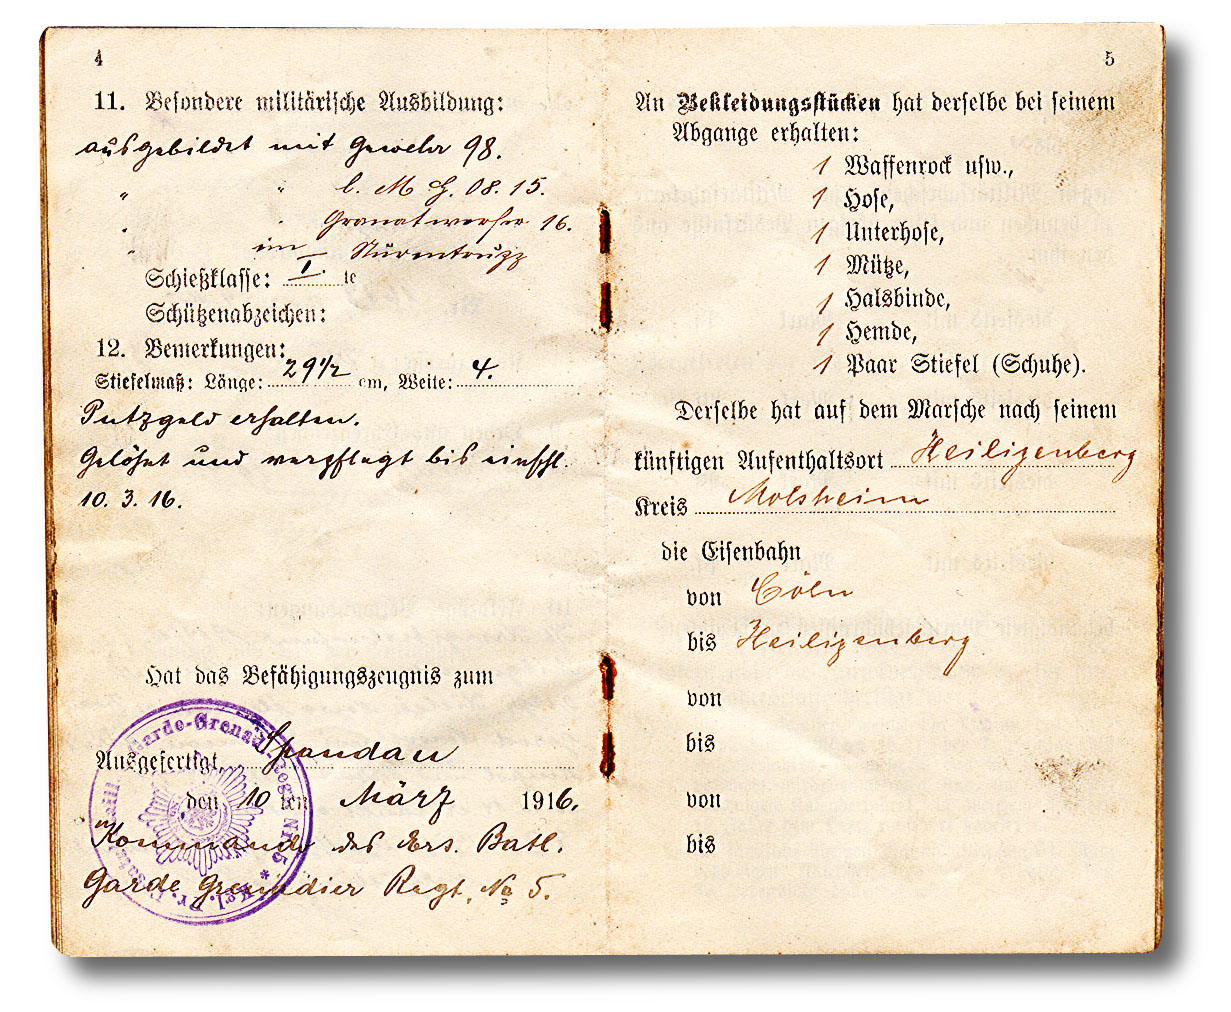 4
11. Besondere militärische Ausbildung:
ausgebildet mit Gewehr 98.
" " l. M. G. 08.15.
" " Granatwerfer 16.
im
Schießklasse: I. te
Schützenabzeichen:
12. Bemerkungen:
Stiefelmaß: Länge: 29 1/2 cm, Weite: 4.
Putzgeld erhalten.
Gelöhnt und verpflegt bis einschl.
10. 3. 16.
Hat das Befähigungszeugnis zum
Ausgefertigt, Spandau
den 10 ten März 1916.
Kommando des Ers. Batl.
Garde Grenadier Regt. No 5.
Garde-Grenad.-Regt. Nr. 5 * Kgl. Pr. Ersatz-Bataill.
5
An Bekleidungsstücken hat derselbe bei seinem
Abgange erhalten:
1 Waffenrock usw.,
1 Hose,
1 Unterhose,
1 Mütze,
1 Halsbinde,
1 Hemde,
1 Paar Stiefel (Schuhe).
Derselbe hat auf dem Marsche nach seinem
künftigen Aufenthaltsort Heiligenberg
Kreis Molsheim
die Eisenbahn
von Cöln
bis Heiligenberg
von
bis
von
bis